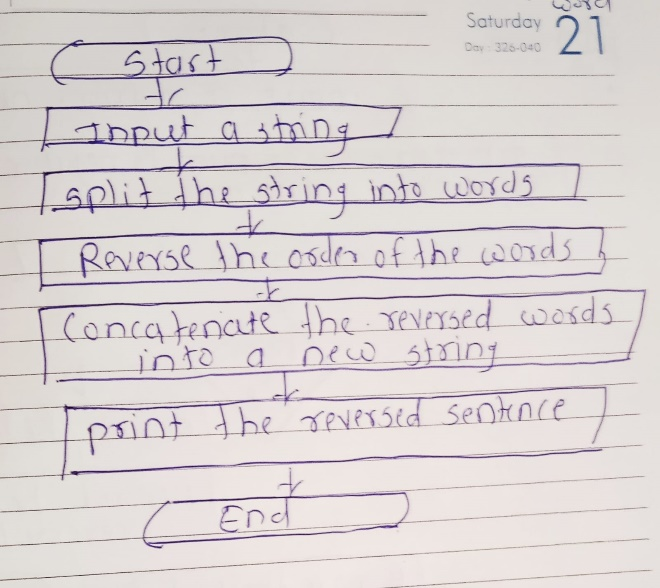 word
Saturday
Day : 326-040
21
Start
Input a string
split the string into words
Reverse the order of the words
Concatenate the reversed words
into a new string
print the reversed sentence
End